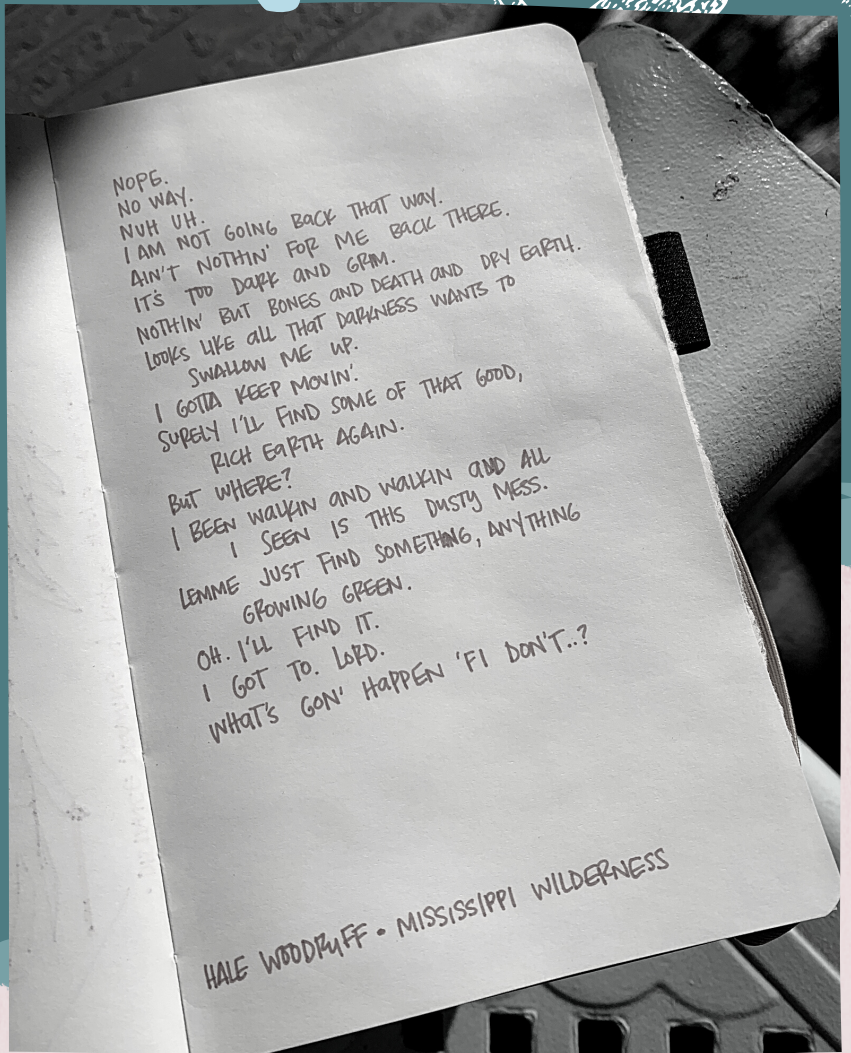 NOPE.
NO WAY.
NUH UH.
I AM NOT GOING BACK THAT WAY.
AIN'T NOTHIN' FOR ME BACK THERE.
IT'S TOO DARK AND GRIM.
NOTHIN' BUT BONES AND DEATH AND DRY EARTH.
LOOKS LIKE ALL THAT DARKNESS WANTS TO
SWALLOW ME UP.
I GOTTA KEEP MOVIN'.
SURELY I'LL FIND SOME OF THAT GOOD,
RICH EARTH AGAIN.
BUT WHERE?
I BEEN WALKIN AND WALKIN AND ALL
I SEEN IS THIS DUSTY MESS.
LEMME JUST FIND SOMETHING, ANYTHING
GROWING GREEN.
OH. I'LL FIND IT.
I GOT TO. LORD.
WHAT'S GON' HAPPEN 'FI DON'T..?
HALE WOODRUFF • MISSISSIPPI WILDERNESS